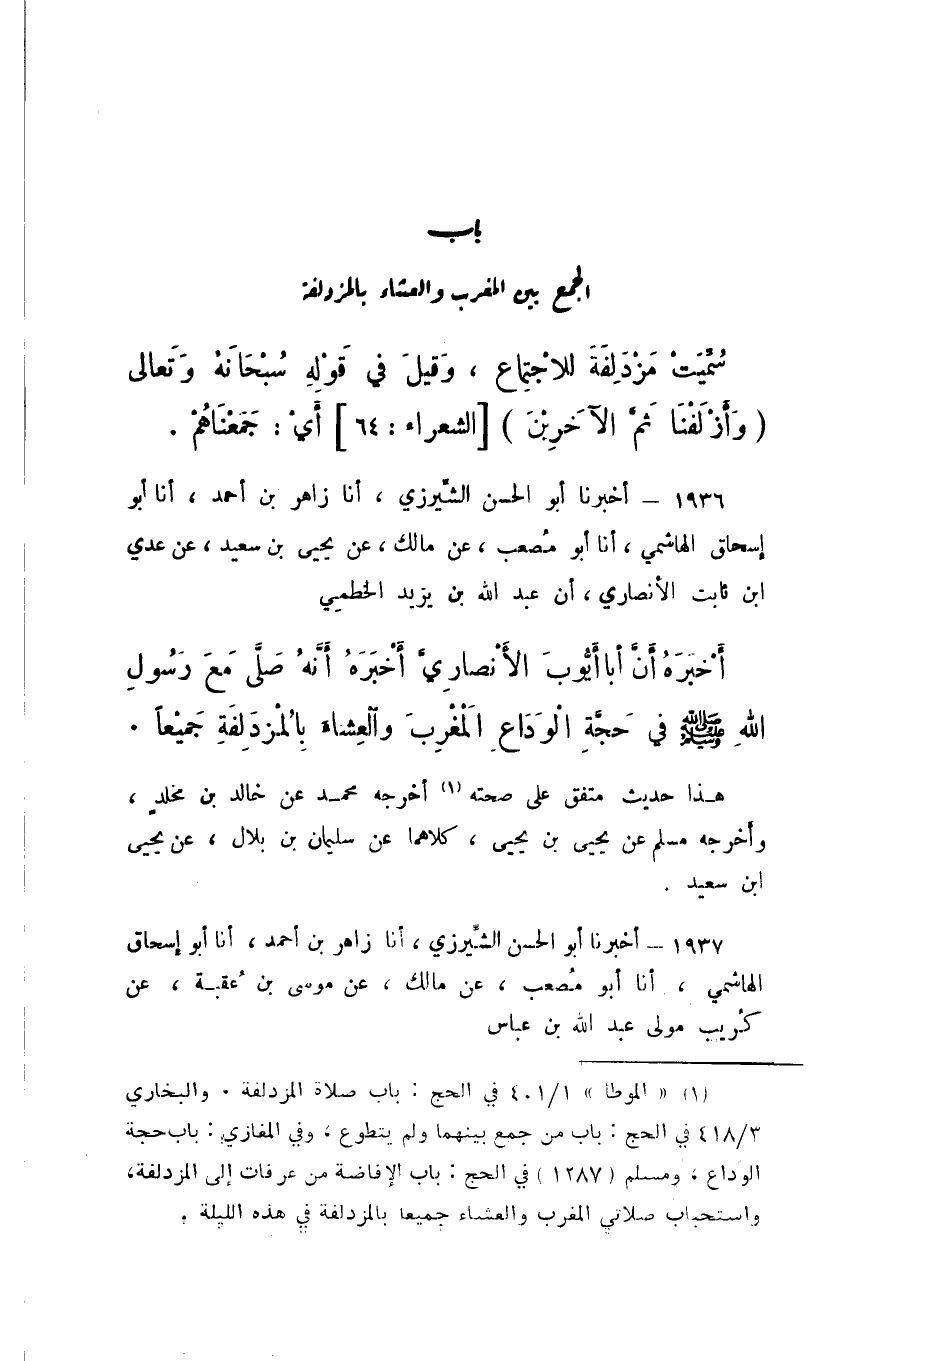 باب
الجمع بين المغرب والعشاء بالمزدلفة
سُمِّيَتْ مَزْدَلِفَةَ للاجْتِماعِ ، وَقيلَ في قَوْلِهِ سُبْحَانَهُ وَتَعالى
( وَأَزْلَفْنَا ثَمَّ الآخَرِيْنَ ) [الشعراء : ٦٤ ] أَيْ : جَمَعْنَاهُمْ .
١٩٣٦ – أخبرنا أبو الحسن الشِّيرزي ، أنا زاهر بن أحمد ، أنا أبو
إسحاق الهاشمي ، أنا أبو مُصعب ، عن مالك ، عن يحيى بن سعيد ، عن عدي
ابن ثابت الأنصاري ، أن عبد الله بن يزيد الخطمي
أَخْبَرَهُ أَنَّ أَبا أَيُّوبَ الأَنْصارِيَّ أَخْبَرَهُ أَنَّهُ صَلَّى مَعَ رَسُولِ
اللهِ ﷺ في حَجَّةِ الْوَدَاعِ الَمْغْرِبَ والْعِشاءَ بِالْمُزدَلِفَةِ جَمِيْعاً .
هـذا حديث متفق على صحته (١) أخرجه محمـد عن خالد بن مخلدٍ ،
وأخرجه مسلم عن يحيى بن يحيى ، كلاهما عن سليمان بن بلال ، عن يحيى
ابن سعيد .
١٩٣٧ – أخبرنا أبو الحسن الشِّيرزي ، أنا زاهر بن أحمد ، أنا أبو إسحاق
الهاشمي ، أنا أبو مُصعب ، عن مالك ، عن موسى بن عُقبـة ، عن
كُريب مولى عبد الله بن عباس
(١) « الموطا » ٤٠١/١ في الحج : باب صلاة المزدلفة . والبخاري
٤١٨/٣ في الحج : باب من جمع بينهما ولم يتطوع ، وفي المغازي : باب حجة
الوداع ، ومسلم ( ١٢٨٧ ) في الحج : باب الإفاضة من عرفات إلى المزدلفة،
واستحباب صلاتي المغرب والعشاء جميعا بالمزدلفة في هذه الليلة .